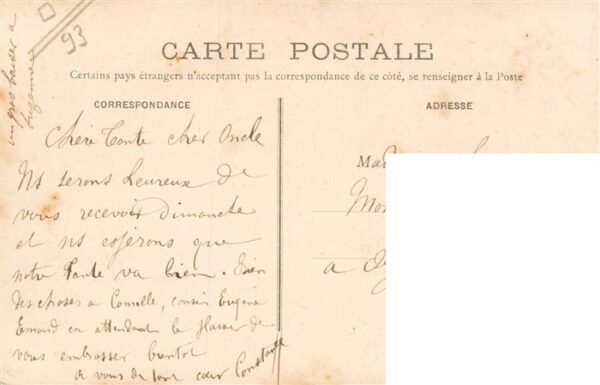 93
un gros baiser a
Suzanne
CARTE POSTALE
Certains pays étrangers n'acceptant pas la correspondance de ce côté, se renseigner à la Poste
CORRESPONDANCE
Chère Tante cher Oncle
Ns serons heureux de
vous recevoir Dimanche
et ns espérons que
notre Tante va bien. Bien
des choses a Camille, cousin Eugène
Esmond en attendant le plaisir de
vous embrasser bientot
a vous de tout cœur Constance
ADRESSE
M
Mon
a